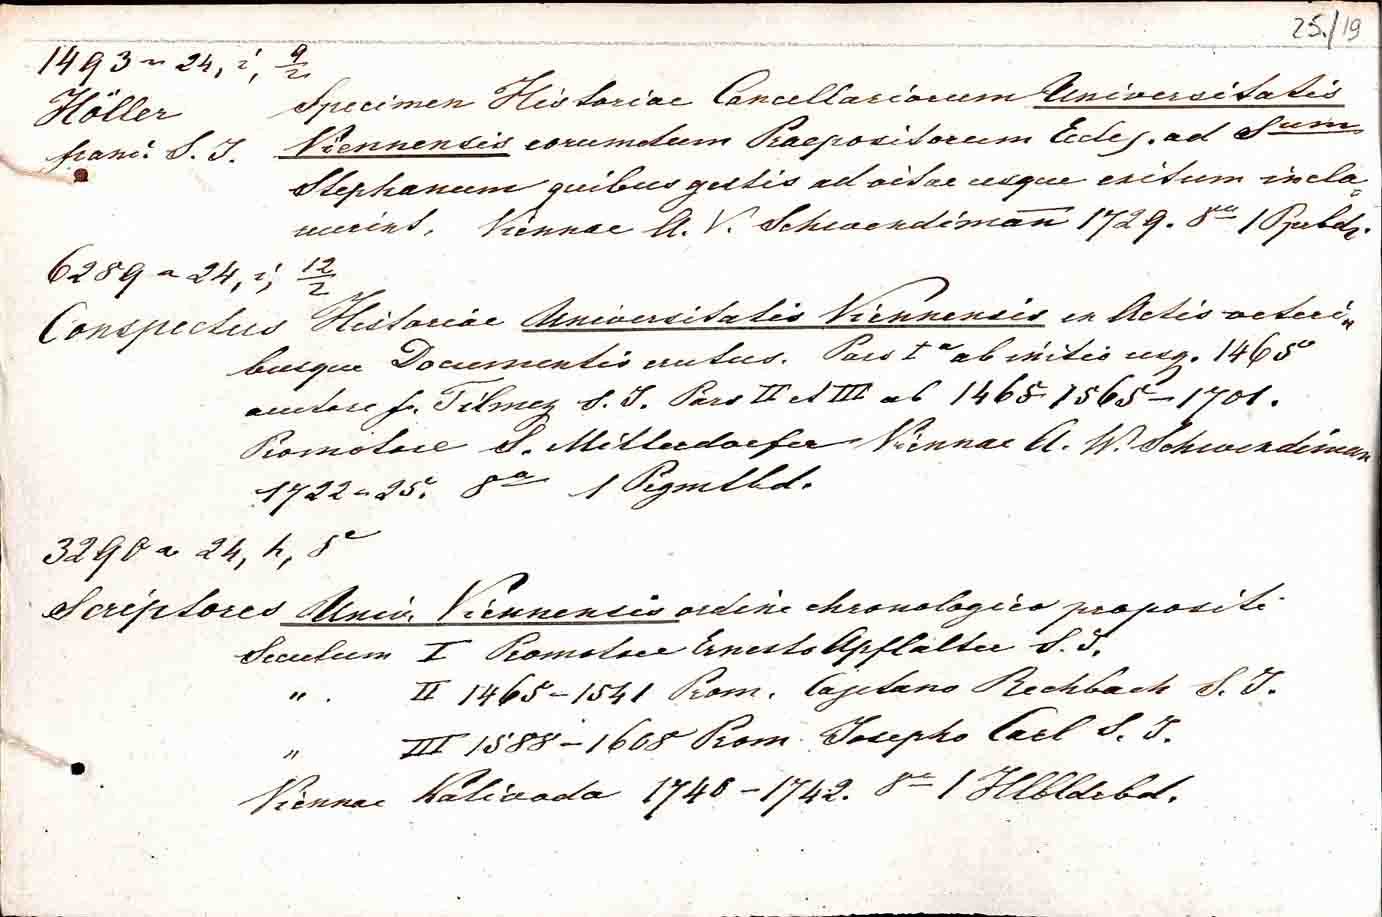 25./19
1493 ~ 24, i, 9/2
Höller Specimen Historiae Cancellariorum Universitatis
franc. S. J. Viennensis eorumdum Praepositorum Eccles. ad Sum
Stephanum quibus gestis ad vitae usque exitum incla„
ruerint, Viennae A. V. Schwendimañ 1729. 8° 1 Ppbd.
6289 ~ 24, i, 12/2
Conspectus Historiae Universitatis Viennensis ex Actis veteri„
busque Documentis erutus. Pars Iª ab initio usq. 1465
auctore fr. Tilmez S. J. Pars II et III ab 1465-1565-1701.
Promotore S. Mitterdorfer Viennae A. W. Schwendiman
1722-25. 8° 1 Pgmtbd.
3290 ~ 24, h, 8
Scriptores Univ. Viennensis ordine chronologico propositi
Seculum I Promotore Ernesto Apfalter S. J.
" . II 1465-1541 Prom. Cajetano Rechbach S. J.
" III 1588-1608 Prom. Josepho Carl S. J.
Viennae Kaliwoda 1740-1742. 8° 1 Hlbldrbd.